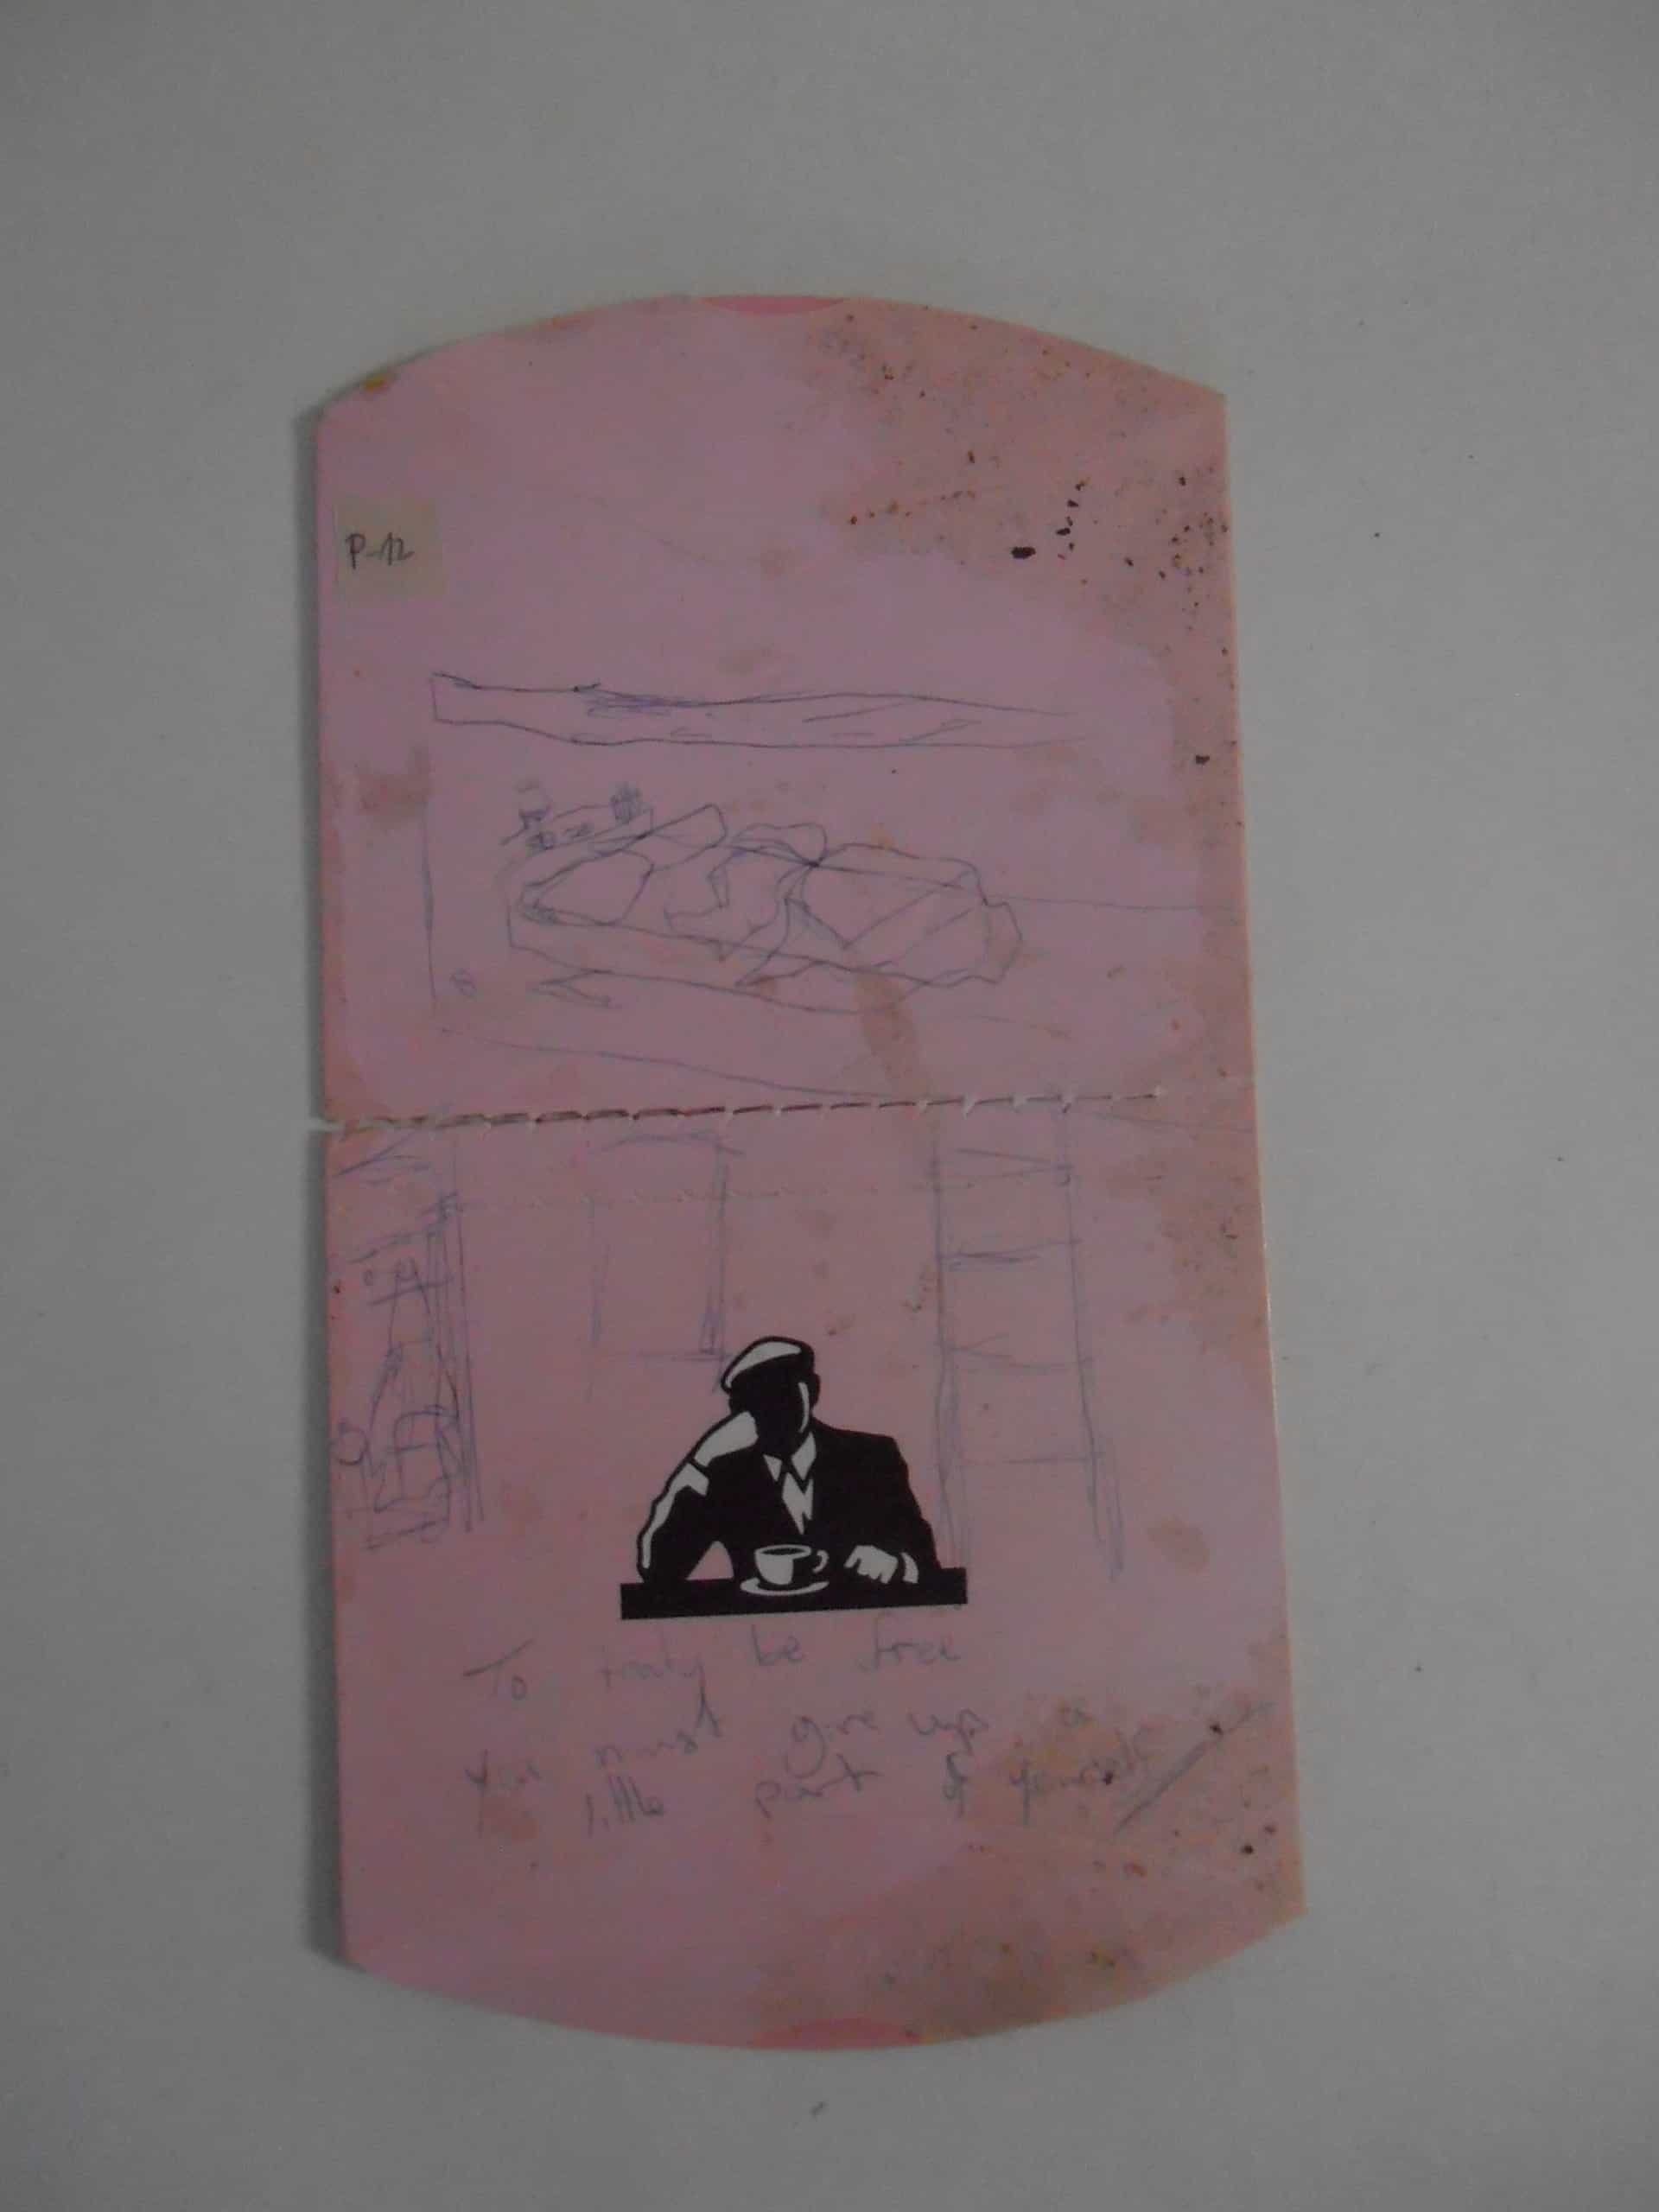 P-12
To truly be free
You must give up a
little part of yourself